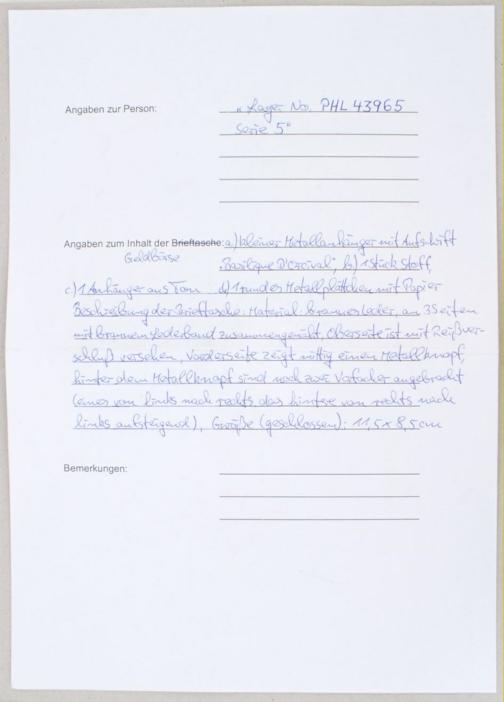 Angaben zur Person: "Lager No. PHL 43965
Serie 5"
Angaben zum Inhalt der Brieftasche: a) kleiner Metallanhänger mit Aufschrift
Geldbörse "Basilique D'Orcival", b) 1 Stück Stoff,
c) 1 Anhänger aus Ton d) 1 rundes Metallplättchen mit Papier
Beschreibung der Brieftasche: Material: braunes Leder, an 3 Seiten
mit braunem Lederband zusammengenäht, Oberseite ist mit Reißver-
schluß versehen, Vorderseite zeigt mittig einen Metallknopf,
hinter dem Metallknopf sind noch zwei Vorfächer angebracht
(eines von links nach rechts das hintere von rechts nach
links aufsteigend), Größe (geschlossen): 11,5 x 8,5 cm
Bemerkungen: